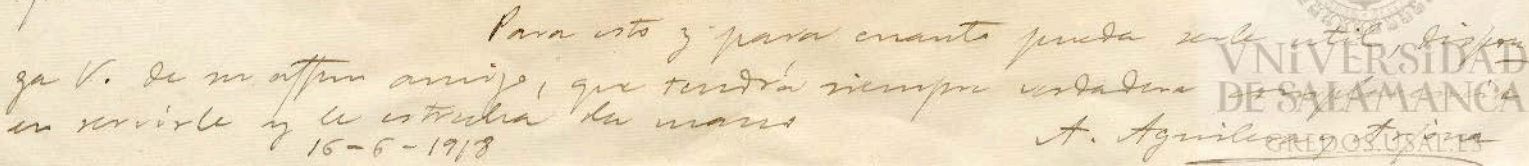 Para esto y para cuanto pueda serle util, dispon
ga V. de su affmo amigo, que tendrá siempre verdadera
en servirle y le estrecha la mano
16-6-1918
A. Aguilera y Arjona
VNiVERSiDAD
DE SALAMANCA
GREDOS.USAL.ES